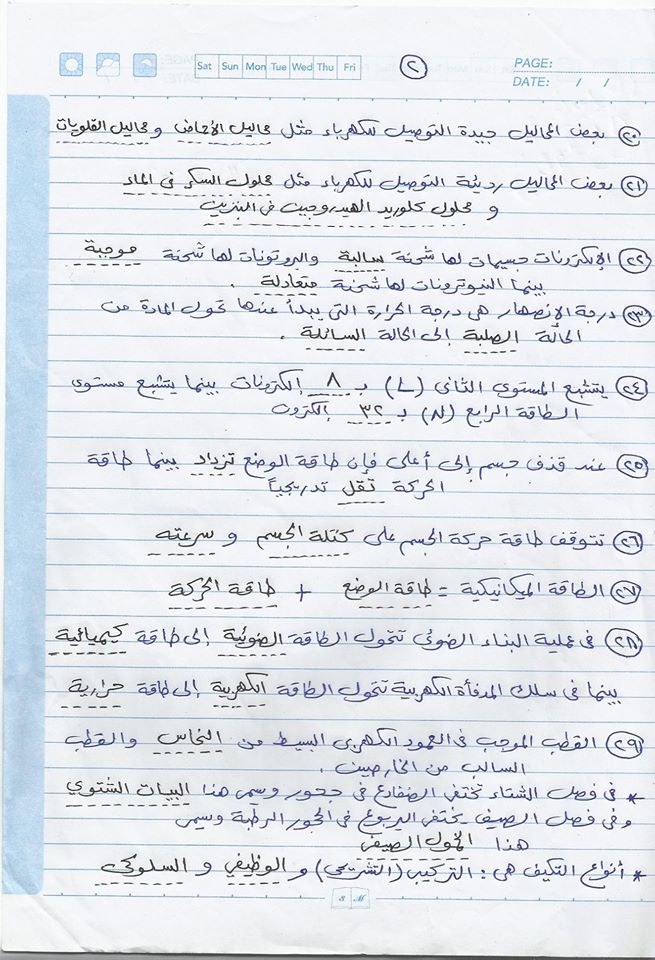 Sat Sun Mon Tue Wed Thu Fri
٢
PAGE:
DATE: / /
٢٠ بعض المحاليل جيدة التوصيل للكهرباء مثل محاليل الأحماض و محاليل القلويات
٢١ بعض المحاليل رديئة التوصيل للكهرباء مثل محلول السكر فى الماء
و محلول كلوريد الهيدروجين فى البنزين
٢٢ الإلكترونات جسيمات لها شحنة سالبة والبروتونات لها شحنة موجبة
بينما النيوترونات لها شحنة متعادلة .
٢٣ درجة الإنصهار هى درجة الحرارة التى يبدأ عندها تحول المادة من
الحالة الصلبة إلى الحالة السائلة .
٢٤ يتشبع المستوى الثانى (L) بـ ٨ إلكترونات بينما يتشبع مستوى
الطاقة الرابع (N) بـ ٣٢ إلكترون
٢٥ عند قذف جسم إلى أعلى فإن طاقة الوضع تزداد بينما طاقة
الحركة تقل تدريجياً
٢٦ تتوقف طاقة حركة الجسم على كتلة الجسم و سرعته
٢٧ الطاقة الميكانيكية = طاقة الوضع + طاقة الحركة
٢٨ فى عملية البناء الضوئى تتحول الطاقة الضوئية إلى طاقة كيميائية
بينما فى سلك المدفأة الكهربية تتحول الطاقة الكهربية إلى طاقة حرارية
٢٩ القطب الموجب فى العمود الكهربى البسيط من النحاس والقطب
السالب من الخارصين .
* فى فصل الشتاء تختفى الضفادع فى جحور ويسمى هذا البيات الشتوي
وفى فصل الصيف يختفى اليربوع فى الجحور الرطبة ويسمى
هذا الخمول الصيفى
* أنواع التكيف هى : التركيبى (التشريحى) و الوظيفى و السلوكى